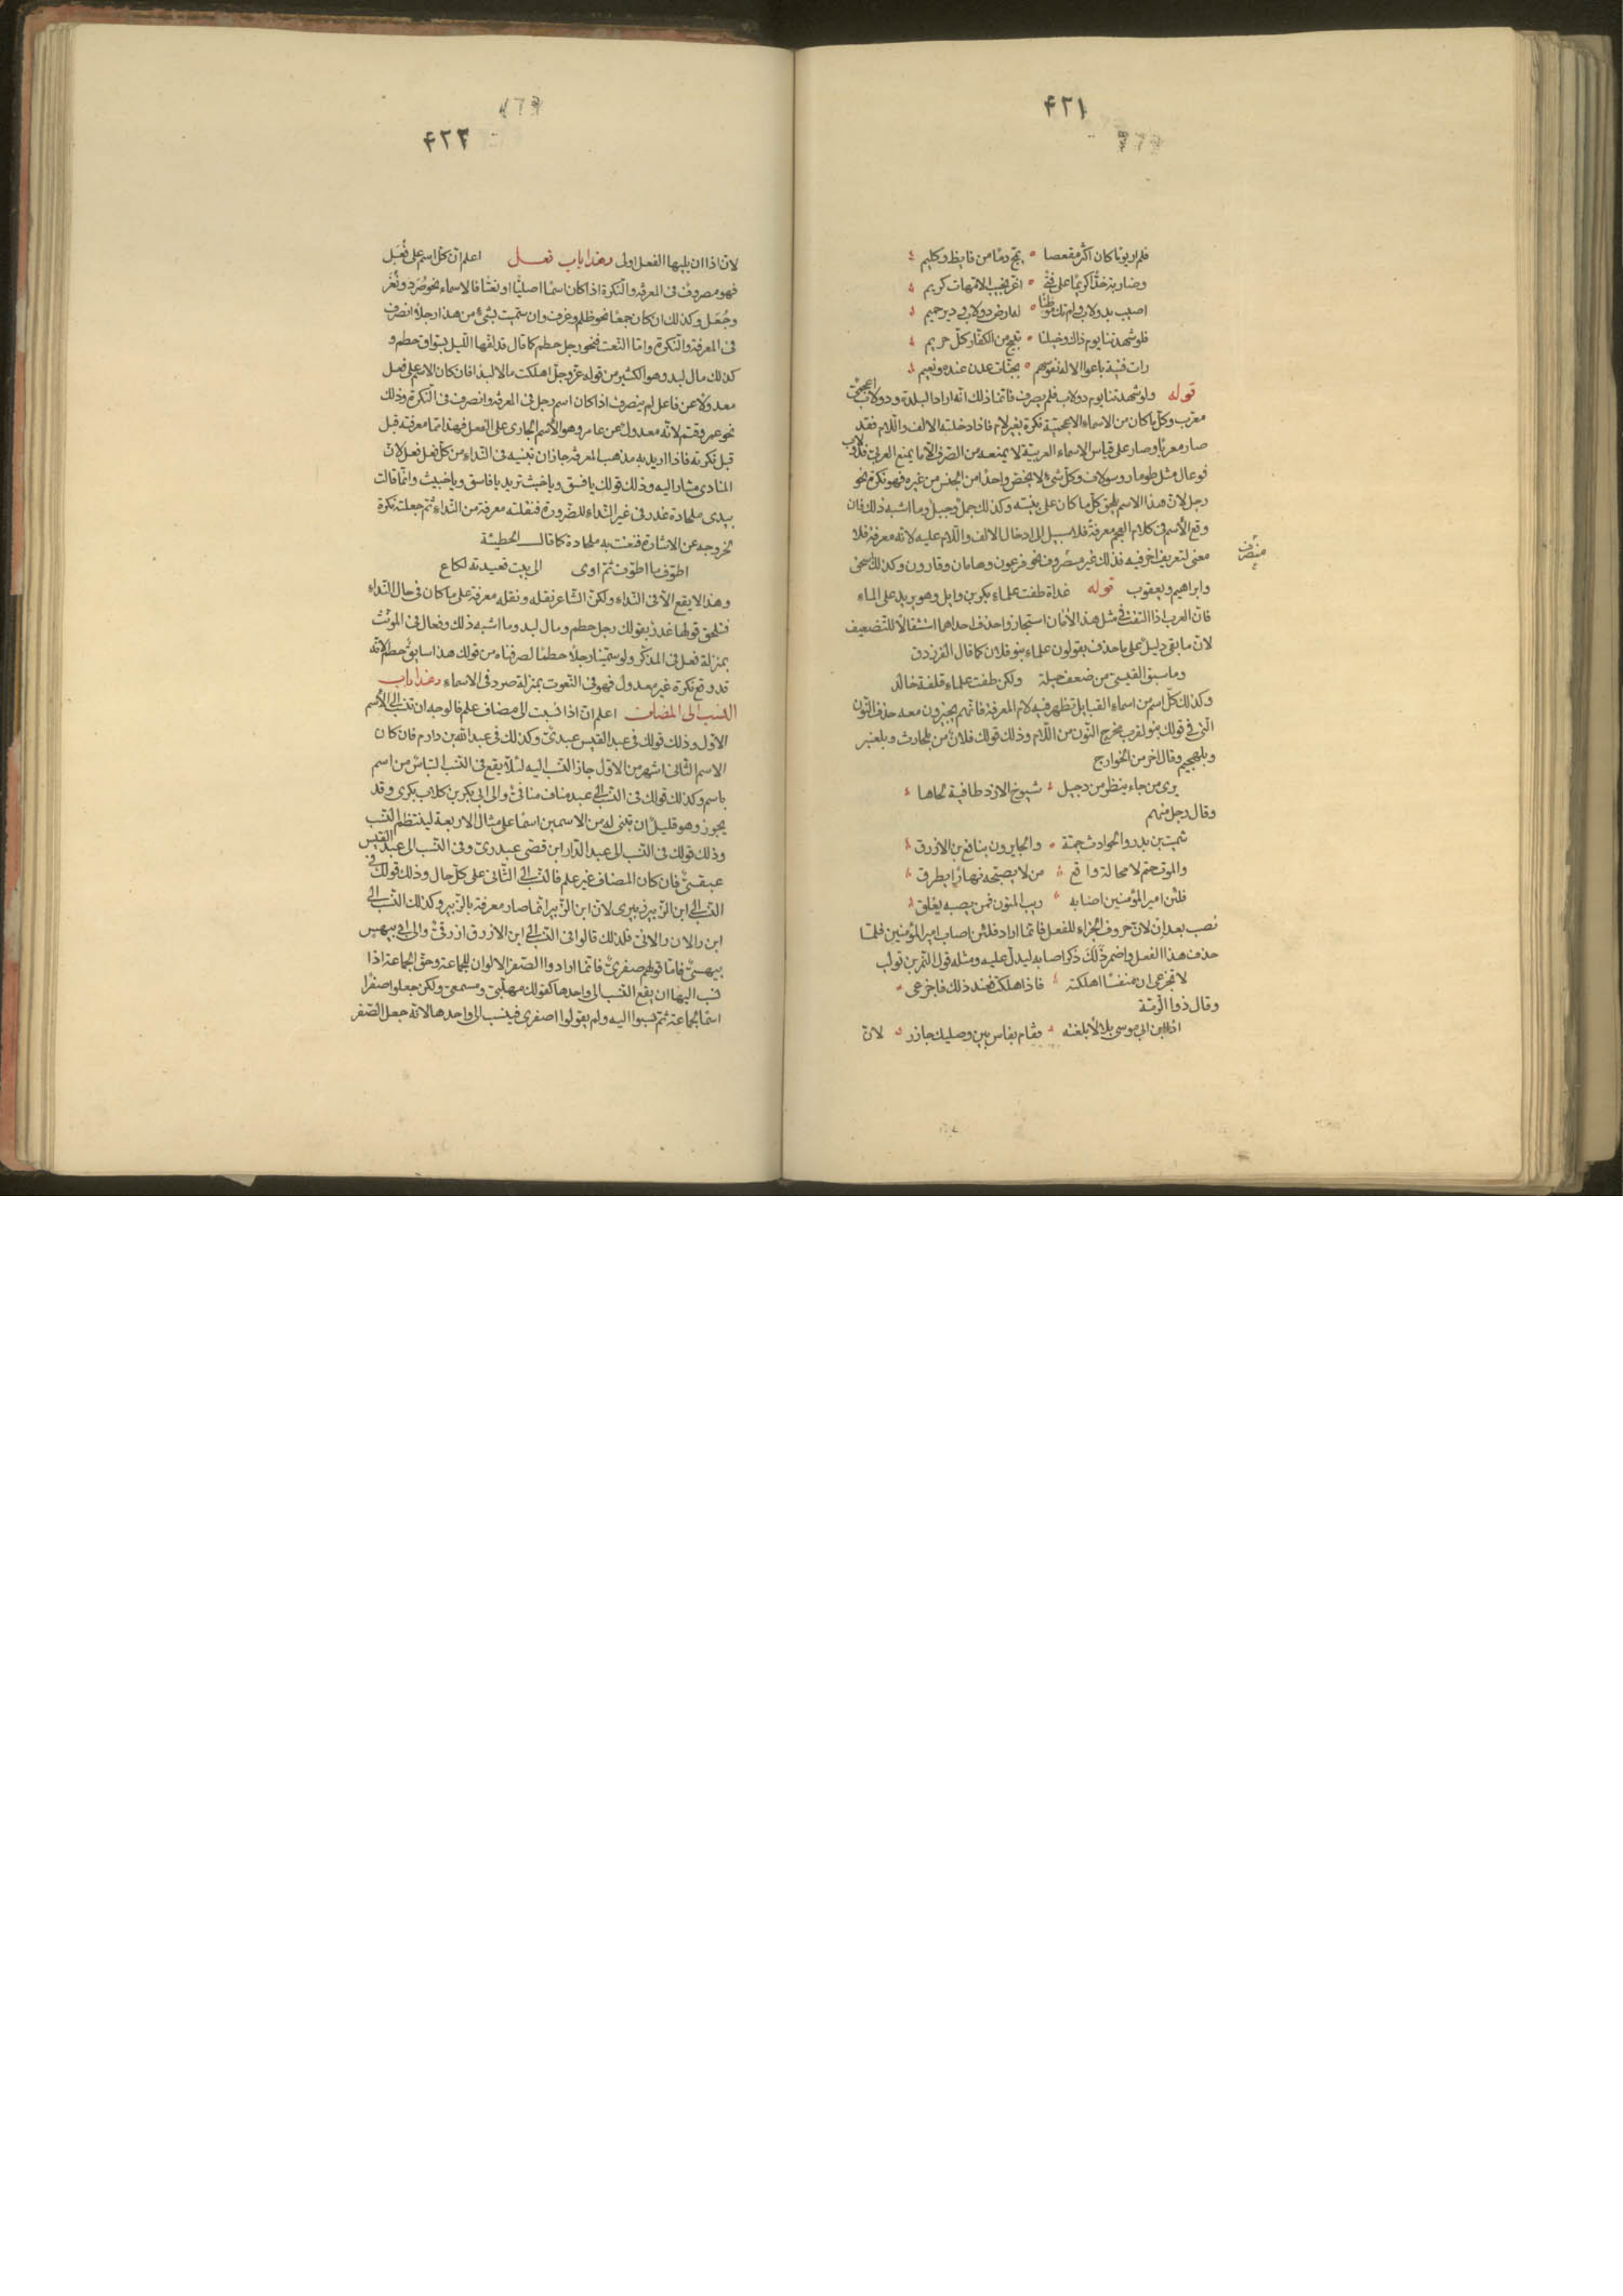 ٤٢١
فلم ار يوما كان اكثر مقعصا ٥ يمج دما من فايظ وكليم
وضاربة خدا كريما على فتى ٥ اغر نجيب الامهات كريم
اصيب بدولاب ولم تك موطنا له ارض دولاب ودير حميم
فلو شهدتنا يوم ذاك وخيلنا ٥ تبيح من الكفار كل حريم
رات فتية باعوا الاله نفوسهم ٥ بجنات عدن عنده ونعيم
قوله ولو شهدتنا يوم دولاب فلم يصرف فانما ذلك انه اراد البلدة ودولاب اعجمى
معرب وكل ما كان من الاسماء الاعجمية نكرة بغير لام فاذا دخلته الالف واللام فقد
صار معربا وصار على قياس الاسماء العربية لا يمنعه من الصرف الا ما يمنع العربى فدولاب
فوعال مثل طومار وسولاف وكل شىء لا يختص واحدا من الجنس من غيره فهو نكرة نحو
رجل لان هذا الاسم يلحق كل ما كان على بنيته وكذلك جمل وجبل وما اشبه ذلك فان
وقع الاسم فى كلام العجم معرفة فلا سبيل الى ادخال الالف واللام عليه لانه معرفة فلا
معنى لتعريف اخر فيه فذلك غير مصروف نحو فرعون وهامان وقارون وكذلك اسحق
منصرف
وابراهيم ويعقوب قوله غداة طفت علماء بكر بن وايل وهو يريد على الماء
فان العرب اذا التقت فى مثل هذا لامان استجازوا حذف احداهما استثقالا للتضعيف
لان ما بقى دليل على ما حذف يقولون علماء بنو فلان كما قال الفرزدق
وما سبق القيسى من ضعف حيلة ولكن طفت علماء قلفة خالد
وكذلك كل اسم من اسماء القبايل تظهر فيه لام المعرفة فانهم يجيزون معه حذف النون
التى فى قولك بنو لقرب مخرج النون من اللام وذلك قولك فلان من بلحارث وبلعنبر
وبلهجيم وقال اخر من الخوارج
يرى من جاء ينظر من دجيل شيوخ الازد طافية لحاها
وقال رجل منهم
شمت بن بدر والحوادث جمة ٥ والجايرون بنافع بن الازرق
والموت حتم لا محالة واقع من لا يصبحه نهارا يطرق
فلئن امير المؤمنين اصابه ريب المنون فمن يصبه يغلق
نصب بعد ان لان حروف الجزاء للفعل فانما اراد فلئن اصاب امير المؤمنين فلما
حذف هذا الفعل واضمر ذلك ذكر اصابه ليدل عليه ومثله قول النمر بن تولب
لا تجزعى ان منفسا اهلكته فاذا هلكت فعند ذلك فاجزعى
وقال ذو الرمة
اذا ابن ابى موسى بلالا بلغته فقام بفاس بين وصليك جازر ٥ لان
٤٢٢
لان اذا ان يليها الفعل اولى وهذا باب فعل اعلم ان كل اسم على فُعَل
فهو مصروف فى المعرفة والنكرة اذا كان اسما اصليا او نعتا فالاسماء نحو صُرَد ونُغَر
وجُعَل وكذلك ان كان جمعا نحو ظلم وغرف وان سميت بشىء من هذا رجلا انصرف
فى المعرفة والنكرة واما النعت فنحو رجل حطم كما قال قد لفها الليل بسواق حطم و
كذلك مال لبد وهو الكثير من قوله عز وجل اهلكت مالا لبدا فان كان الاسم على فعل
معدولا عن فاعل لم ينصرف اذا كان اسم رجل فى المعرفة وانصرف فى النكرة وذلك
نحو عمر وقثم لانه معدول عن عامر وهو الاسم الجارى على الفعل فهذا مما معرفته قبل
قبل نكرته فاذا اريد به مذهب المعرفة جاز ان تبنيه فى النداء من كل فعل فعل لان
المنادى مشار اليه وذلك قولك يا فسق ويا خبث تريد يا فاسق ويا خبيث وانما قالت
بيدى ملحادة غدر فى غير النداء للضرورة فنقلته معرفة من النداء ثم جعلته نكرة
لخروجه عن الاشارة فنعتت به ملحادة كما قال الحطيئة
اطوف ما اطوف ثم اوى الى بيت قعيدته لكاع
وهذا لا يقع الا فى النداء ولكن الشاعر نقله ونقله معرفة على ما كان فى حال النداء
فيلحق قولها غدر بقولك رجل حطم ومال لبد وما اشبه ذلك وفعال فى المونث
بمنزلة فعل فى المذكر ولو سمينا رجلا حطما لصرفناه من قولك هذا سايق حطم لانه
قد وقع نكرة غير معدول فهو فى النعوت بمنزلة صرد فى الاسماء وهذا باب
النسب الى المضاف اعلم ان اذا نسبت الى مضاف علم فالوجه ان تنسب الى الاسم
الاول وذلك قولك فى عبد القيس عبدى وكذلك فى عبد الله بن دارم فان كان
الاسم الثانى اشهر من الاول جاز النسب اليه لئلا يقع فى النسب التباس من اسم
باسم وكذلك قولك فى النسب الى عبد مناف منافى والى ابى بكر بن كلاب بكرى وقد
يجوز وهو قليل ان تبنى له من الاسمين اسما على مثال الاربعة لينتظم النسب
وذلك قولك فى النسب الى عبد الدار ابن قصى عبدرى وفى النسب الى عبد القيس
عبقسى فان كان المضاف غير علم فالنسب الى الثانى على كل حال وذلك قولك فى
النسب الى ابن الزبير زبيرى لان ابن الزبير انما صار معرفة بالزبير وكذلك النسب الى
ابن رالان رالانى فلذلك قالوا فى النسب الى ابن الازرق ازرقى والى ابى بيهس
بيهسى فاما قولهم صفرى فانما ارادوا الصفر الالوان للجماعة وحق الجماعة اذا
نسب اليها ان يقع النسب الى واحدها كقولك مهلبى ومسمعى ولكن جعلوا صفرا
اسما لجماعة ثم نسبوا اليه ولم يقولوا اصفرى فينسب الى واحدها لانه جعل الصفر